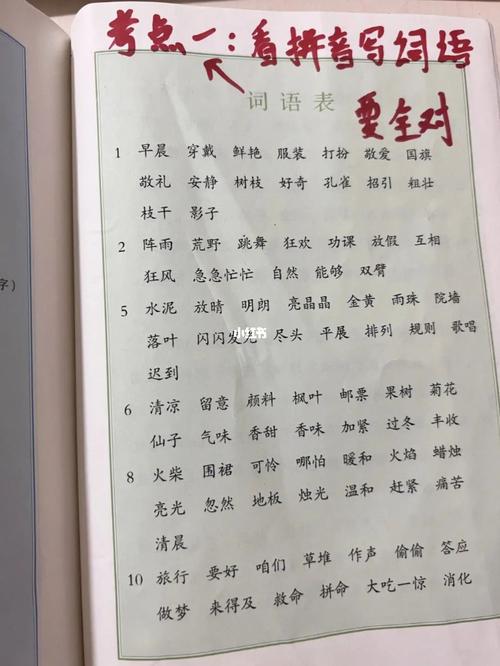 考点一：看拼音写词语
要全对
词语表
1 早晨 穿戴 鲜艳 服装 打扮 敬爱 国旗
敬礼 安静 树枝 好奇 孔雀 招引 粗壮
枝干 影子
2 阵雨 荒野 跳舞 狂欢 功课 放假 互相
狂风 急急忙忙 自然 能够 双臂
5 水泥 放晴 明朗 亮晶晶 金黄 雨珠 院墙
落叶 闪闪发光 尽头 平展 排列 规则 歌唱
迟到
小红书
6 清凉 留意 颜料 枫叶 邮票 果树 菊花
仙子 气味 香甜 香味 加紧 过冬 丰收
8 火柴 围裙 可怜 哪怕 暖和 火焰 蜡烛
亮光 忽然 地板 烛光 温和 赶紧 痛苦
清晨
10 旅行 要好 咱们 草堆 作声 偷偷 答应
做梦 来得及 救命 拼命 大吃一惊 消化
字）